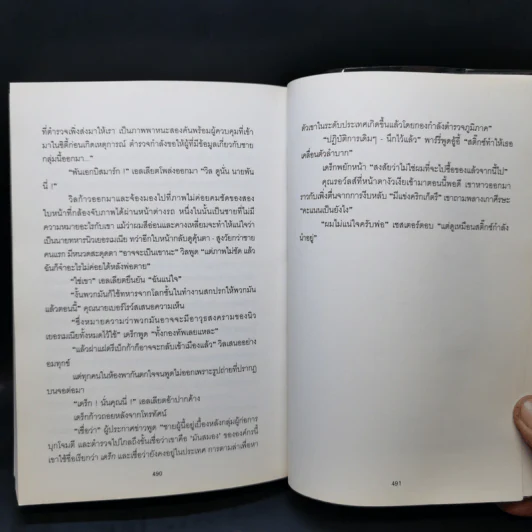 ที่ตำรวจเพิ่งส่งมาให้เรา เป็นภาพพาหนะสองคันพร้อมผู้ควบคุมที่เข้า
มาในซิตี้ก่อนเกิดเหตุการณ์ ตำรวจกำลังขอให้ผู้ที่มีข้อมูลเกี่ยวกับชาย
กลุ่มนี้ออกมา..."
"พันเอกบิสมาร์ก !" เอลเลียตโพล่งออกมา "วิล ดูนั่น นายพัน
นี่ !"
วิลก้าวออกมาและจ้องมองไปที่ภาพไม่ค่อยคมชัดของสอง
ใบหน้าที่กล้องจับภาพได้ผ่านหน้าต่างรถ หนึ่งในนั้นเป็นชายที่ไม่มี
ความหมายอะไรกับเขา แม้ว่าผมสีอ่อนและคางเหลี่ยมจะทำให้แน่ใจว่า
เป็นนายทหารนิวเยอรมเนีย ทว่าอีกใบหน้ากลับดูคุ้นตา - สูงวัยกว่าชาย
คนแรก มีหนวดสะดุดตา "อาจจะเป็นเขานะ" วิลพูด "แต่ภาพไม่ชัด แล้ว
ฉันก็จำอะไรไม่ค่อยได้หลังพ่อตาย"
"ใช่เขา" เอลเลียตยืนยัน "ฉันแน่ใจ"
"งั้นพวกมันก็ใช้ทหารจากโลกชั้นในทำงานสกปรกให้พวกมัน
แล้วตอนนี้" คุณนายเบอร์โรวส์เสนอความเห็น
"ซึ่งหมายความว่าพวกมันอาจจะมีอาวุธสงครามของนิว
เยอรมเนียทั้งหมดไว้ใช้" เดร็กพูด "ทั้งกองทัพเลยแหละ"
"แล้วฝาแฝดรีเบ็กก้าก็อาจจะกลับเข้าเมืองแล้ว" วิลเสนออย่าง
อมทุกข์
แต่ทุกคนในห้องพากันตกใจจนพูดไม่ออกเพราะรูปถ่ายที่ปรากฏ
บนจอต่อมา
"เดร็ก ! นั่นคุณนี่ !" เอลเลียตอ้าปากค้าง
เดร็กก้าวถอยหลังจากโทรทัศน์
"เชื่อว่า" ผู้ประกาศข่าวพูด "ชายผู้นี้อยู่เบื้องหลังกลุ่มผู้ก่อการ
บุกโจมตี และตำรวจไปไกลถึงขั้นเชื่อว่าเขาคือ 'มันสมอง' ขององค์กรนี้
เขาใช้ชื่อเรียกว่า เดร็ก และเชื่อว่ายังคงอยู่ในประเทศ การตามล่าเพื่อหา
490
ตัวเขาในระดับประเทศเกิดขึ้นแล้วโดยกองกำลังตำรวจภูมิภาค"
"ปฏิบัติการเดิมๆ - นึกไว้แล้ว" พาร์รี่พูดอู้อี้ "สติ๊กซ์ทำให้เรา
เคลื่อนตัวลำบาก"
เดร็กพยักหน้า "สงสัยว่าไม่ใช่ผมที่จะไปซื้อของแล้วจากนี้ไป"
คุณรอว์ลส์ที่หน้าตางัวเงียเข้ามาตอนนี้พอดี เขาหาวออกมา
ราวกับเพิ่งตื่นจากการงีบหลับ "มีแข่งคริกเก็ตรึ" เขาถามพลางเกาศีรษะ
"คะแนนเป็นยังไง"
"ผมไม่แน่ใจครับพ่อ" เชสเตอร์ตอบ "แต่ดูเหมือนสติ๊กซ์กำลัง
นำอยู่"
491